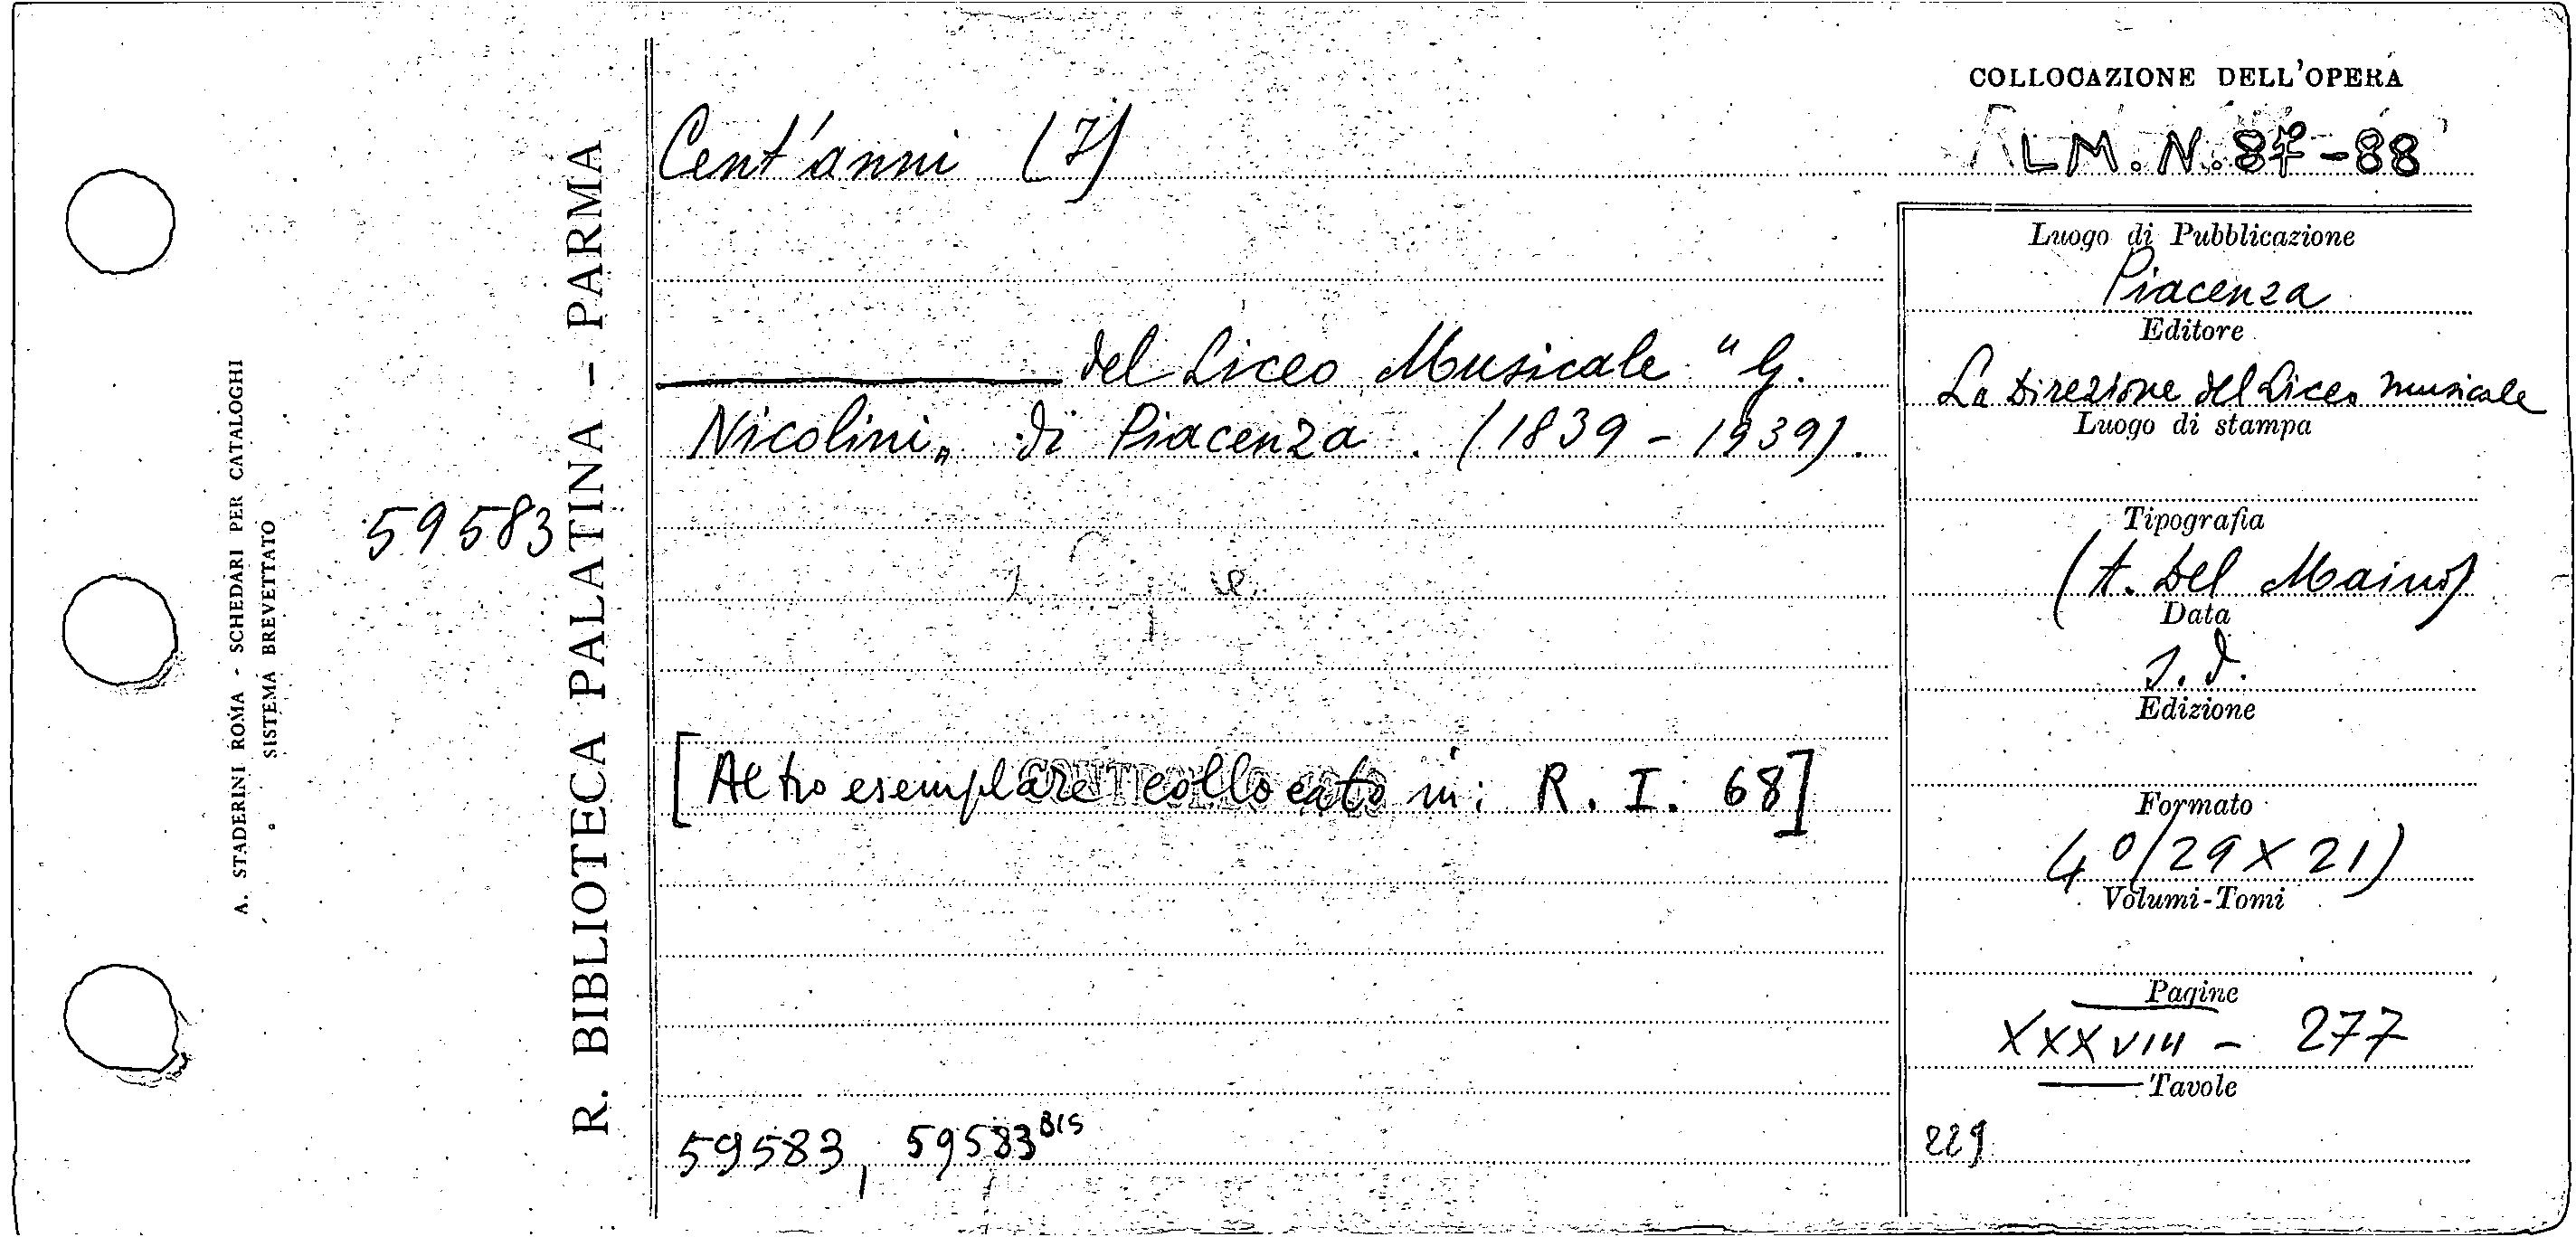 COLLOCAZIONE DELL'OPERA
L M. N. 87-88
Cent'anni (I)
del Liceo Musicale "G.
Nicolini„ di Piacenza. (1839 - 1939).
[Altro esemplare collocato in: R. I. 68]
59583, 59583 BIS
Luogo di Pubblicazione
Piacenza
Editore
La Direzione del Liceo musicale
Luogo di stampa
Tipografia
(A. Del Maino)
Data
s. d.
Edizione
Formato
4º (29 X 21)
Volumi-Tomi
Pagine
XXXVIII - 277
Tavole
229
R. BIBLIOTECA PALATINA - PARMA
59583
A. STADERINI ROMA - SCHEDARI PER CATALOGHI
SISTEMA BREVETTATO